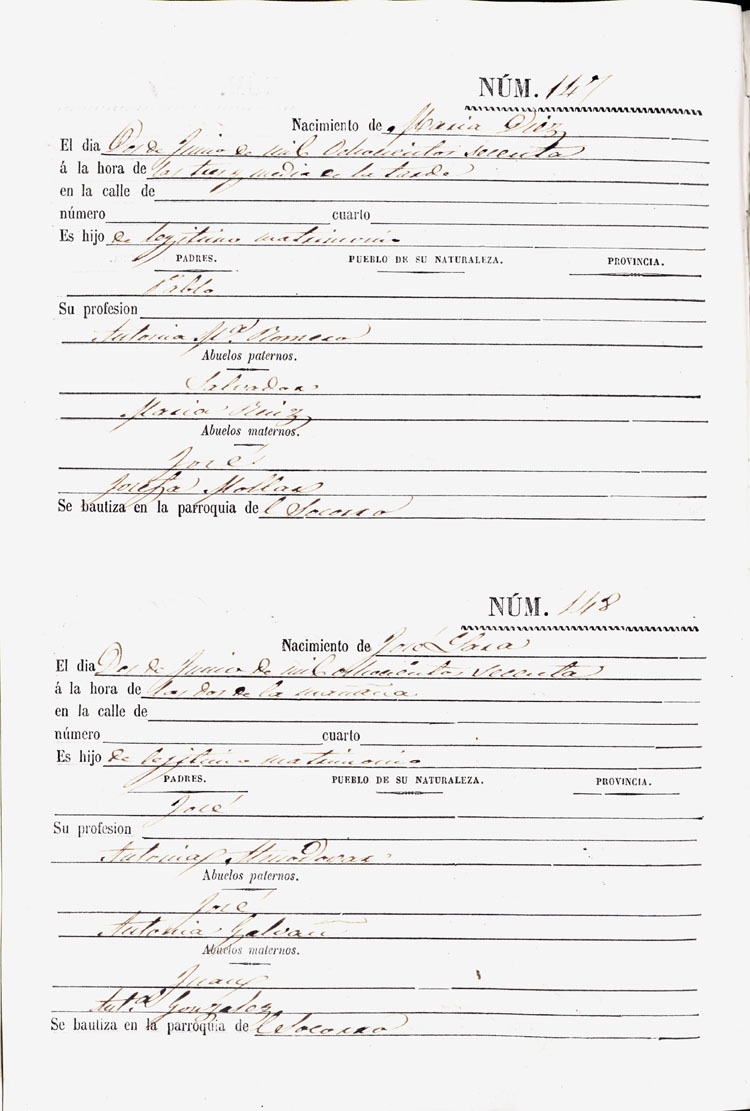 NÚM. 147
Nacimiento de Maria Diaz
El dia Dos de Junio de mil Ochocientos sesenta
á la hora de las tres y media de la tarde
en la calle de
número cuarto
Es hijo de legitimo matrimonio
PADRES. PUEBLO DE SU NATURALEZA. PROVINCIA.
Pablo
Su profesion
Antonia Mª Romero
Abuelos paternos.
Salvador
Maria Ruiz
Abuelos maternos.
José
Josefa Mollar
Se bautiza en la parroquia del Socorro
NÚM. 148
Nacimiento de José Lara
El dia Dos de Junio de mil ochocientos sesenta
á la hora de las dos de la mañana
en la calle de
número cuarto
Es hijo de legitimo matrimonio
PADRES. PUEBLO DE SU NATURALEZA. PROVINCIA.
José
Su profesion
Antonia Almodovar
Abuelos paternos.
José
Antonia Galvañ
Abuelos maternos.
Juan
Antª Gonzalez
Se bautiza en la parroquia del Socorro